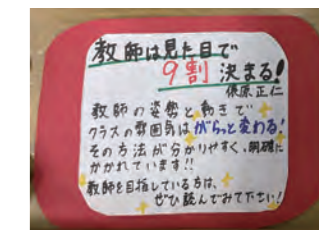 教師は見た目で
9割 決まる!
俵原 正仁
教師の姿勢と動きで
クラスの雰囲気はがらっと変わる!
その方法が分かりやすく、明確に
かかれています!!
教師を目指している方は、
ぜひ読んでみて下さい!